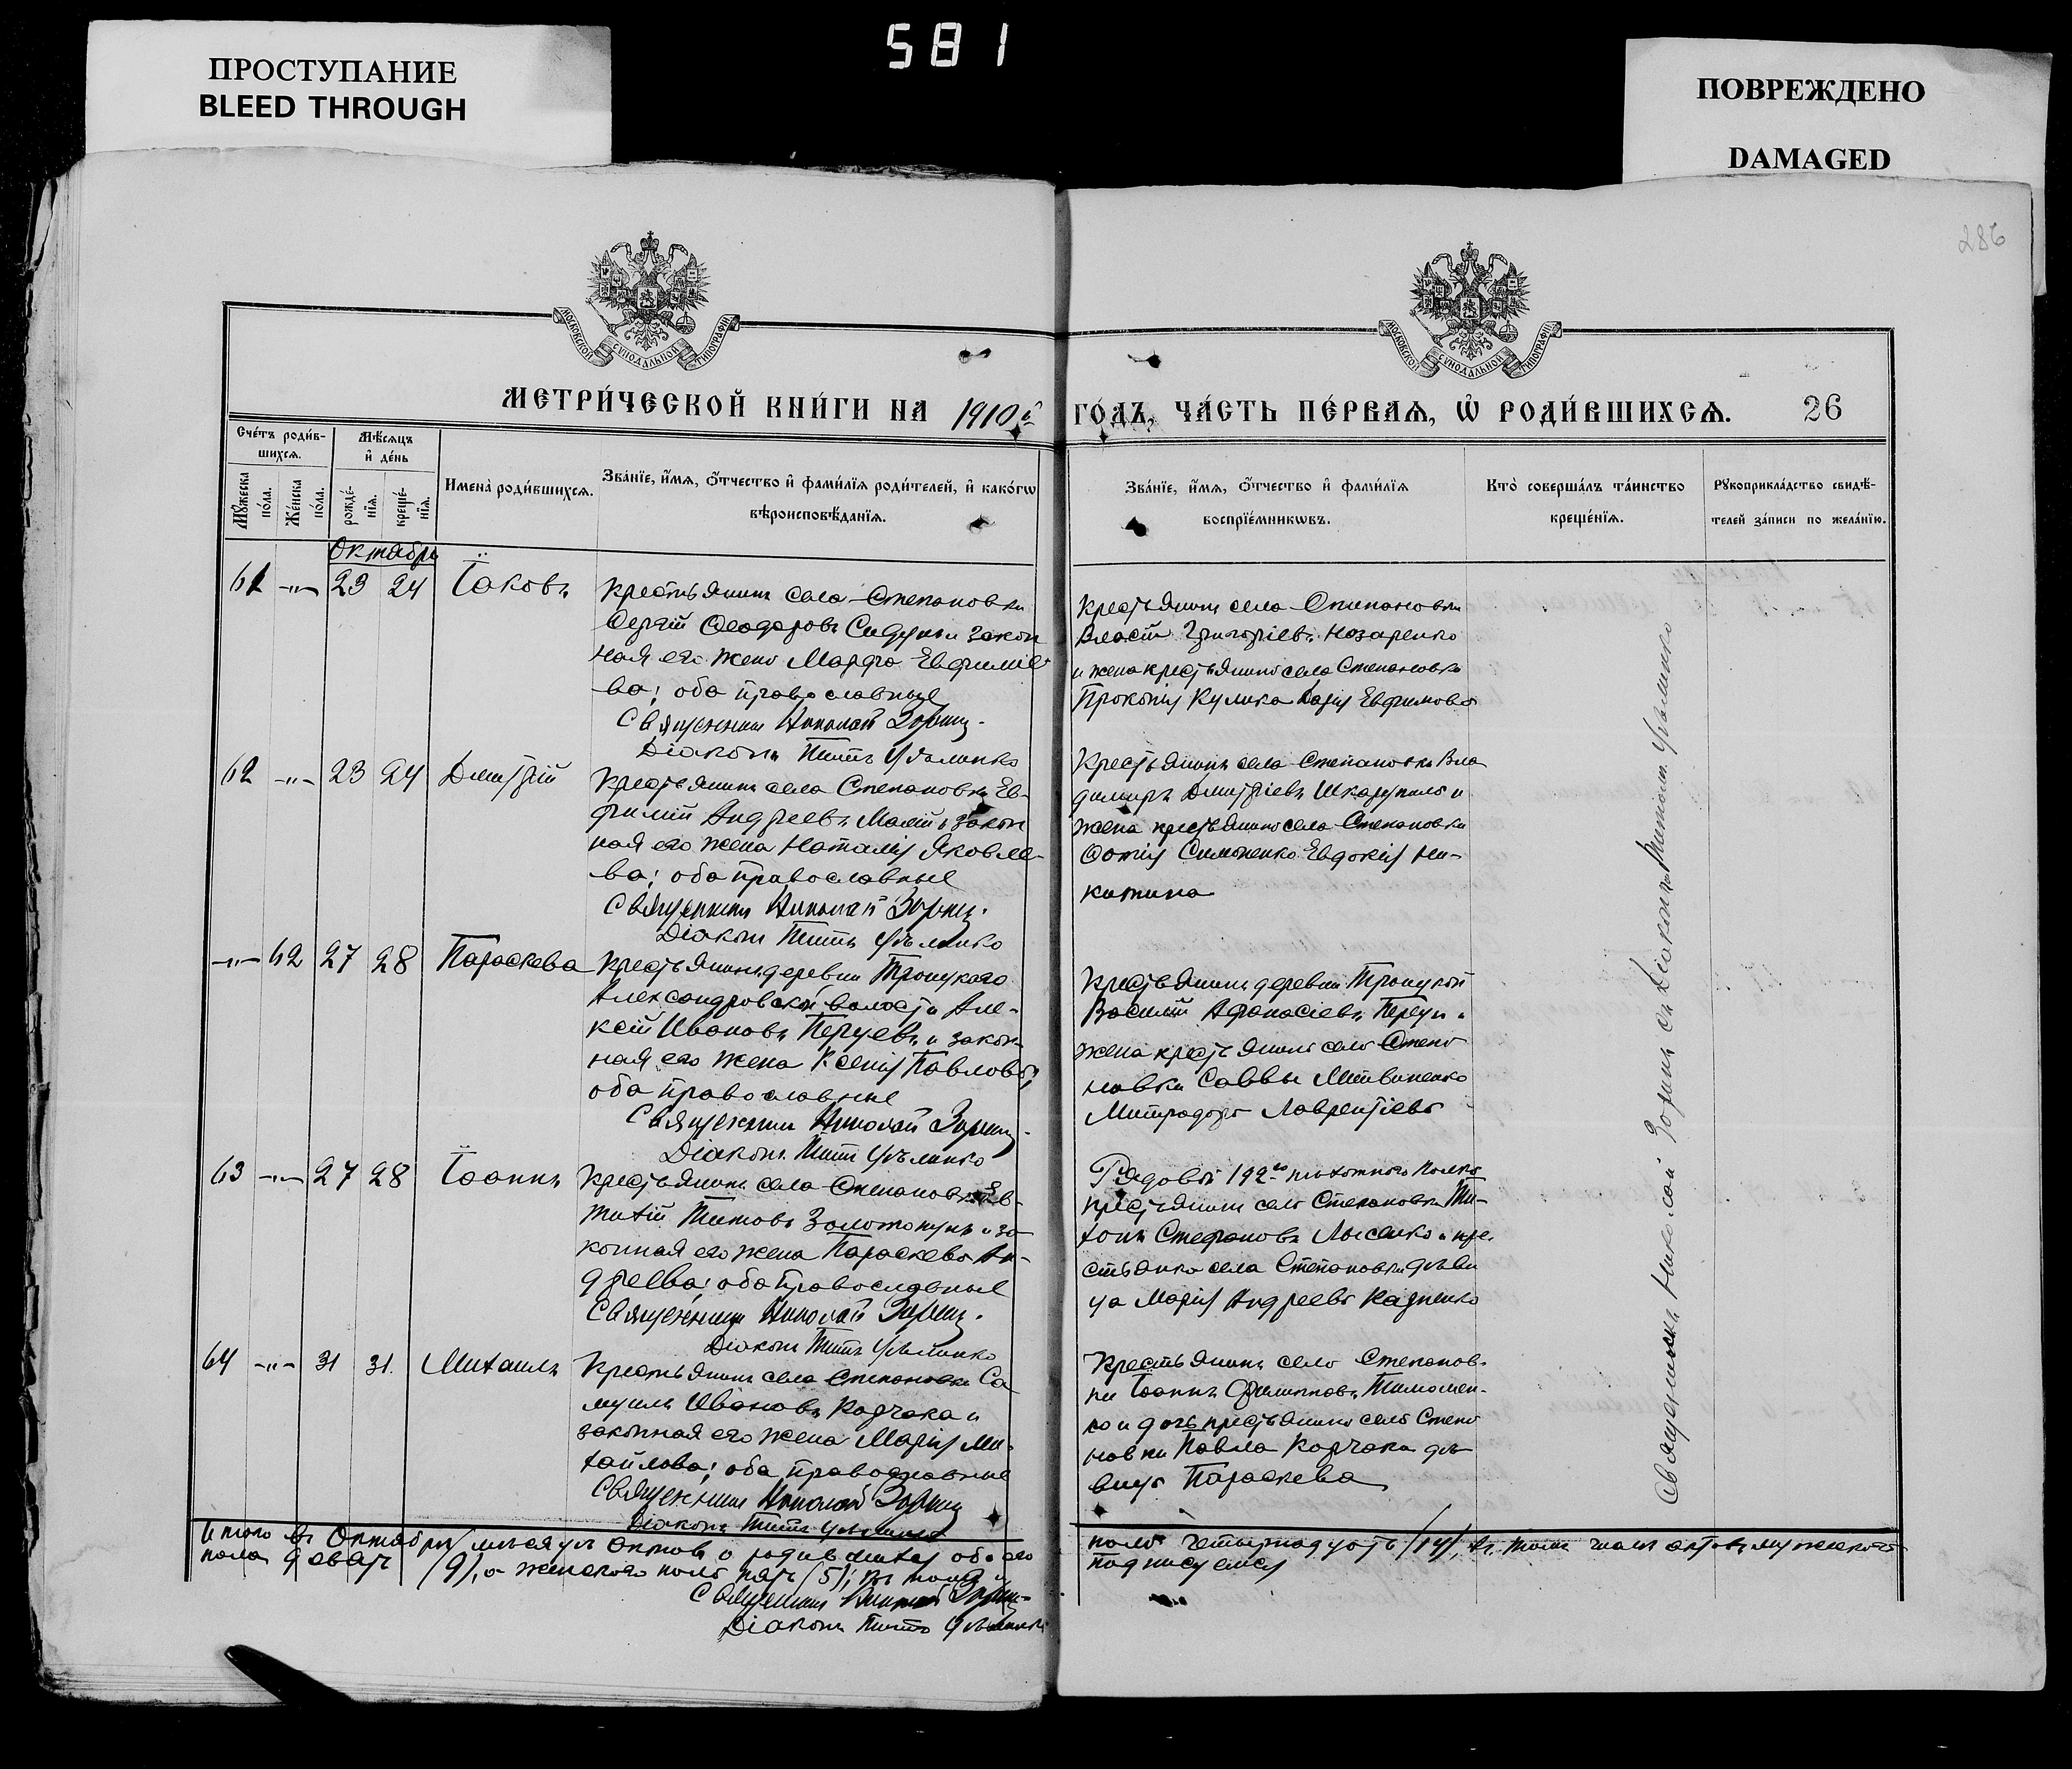 581
ПРОСТУПАНИЕ
BLEED THROUGH
ПОВРЕЖДЕНО
DAMAGED
286
МОСКОВСКОЙ СѴНОДАЛЬНОЙ ТИПОГРАФІИ
МОСКОВСКОЙ СѴНОДАЛЬНОЙ ТИПОГРАФІИ
МЕТРИ́ЧЕСКОЙ КНИ́ГИ НА 1910й ГО́ДЪ, ЧА́СТЬ ПЕ́РВАѦ, Ѡ҆ РОДИ́ВШИХСѦ. 26
Сче́тъ роди́в-
шихсѧ.
Мꙋжеска по́ла.
Же́нска по́ла.
Мѣ́сѧцъ
и҆ де́нь
рожде́-
нїѧ.
креще́-
нїѧ.
Имена̀ роди́вшихсѧ.
Зва́нїе, и҆́мѧ, ѻ҆́тчество и҆ фами́лїѧ роди́телей, и҆ како́гѡ
вѣроисповѣ́данїѧ.
Зва́нїе, и҆́мѧ, ѻ҆́тчество и҆ фами́лїѧ
воспрїе́мникѡвъ.
Кто̀ соверша́лъ та́инство
креще́нїѧ.
Рꙋкоприкла́дство свидѣ́-
телей за́писи по жела́нїю.
Октябрь
61 -"- 23 24 Іаковъ
Крестьянинъ села Степановки
Ѳеодоровъ и закон
ная его жена Марфа Евфиміе
ва; оба православные
Священникъ Николай Зоринъ.
Діаконъ Титъ
Крестьянинъ села Степановки
Власій Григоріевъ Назаренко
и жена крестьянина села Степановки
Прокопія Кулика Дарія Евфимова
62 -"- 23 24 Дмитрій
Крестьянинъ села Степановки Ев-
фимій Андреевъ и закон
ная его жена Наталія Яковле-
ва; оба православные
Священникъ Николай Зоринъ.
Діаконъ Титъ
Крестьянинъ села Степановки Вла
димиръ Дмитріевъ и
жена крестьянина села Степановки
Фотія Симоненко Евдокія Ни-
китина
-"- 62 27 28 Параскева
Крестьянинъ деревни Троицкаго
Александровской волости Але-
ксѣй Ивановъ и закон
ная его жена Ксенія Павлова;
оба православные
Священникъ Николай Зоринъ.
Діаконъ Титъ
Крестьянинъ деревни Троицкой
Василій Афанасіевъ и
жена крестьянина села Степа
новки Саввы Литвиненко
Митродора Лаврентіева
63 -"- 27 28 Іоаннъ
Крестьянинъ села Степановки Ев-
тихій Титовъ и за
конная его жена Параскева Ан-
дреева; оба православные
Священникъ Николай Зоринъ.
Діаконъ Титъ
Рядовой 192го пѣхотнаго полка
крестьянинъ села Степановки Ти-
хонъ Стефановъ Лысенко и кре-
стьянка села Степановки дѣви
ца Марія Андреева
64 -"- 31 31. Михаилъ
Крестьянинъ села Степановки Са
муилъ Ивановъ Корчака и
законная его жена Марія Ми-
хайлова; оба православные
Священникъ Николай Зоринъ
Діаконъ Титъ
Крестьянинъ села Степанов-
ки Іоаннъ Филипповъ Тимошен-
ко и дочь крестьянина села Степа
новки Павла Корчака дѣ-
вица Параскева
Священникъ Николай Зоринъ съ Діакономъ Титомъ
Итого въ Октябрѣ мѣсяцѣ родившихся обоего пола четырнадцать (14), въ томъ числѣ мужескаго
пола девять (9), а женскаго пола пять (5); въ томъ и подписуемся
Священникъ Николай Зоринъ
Діаконъ Титъ